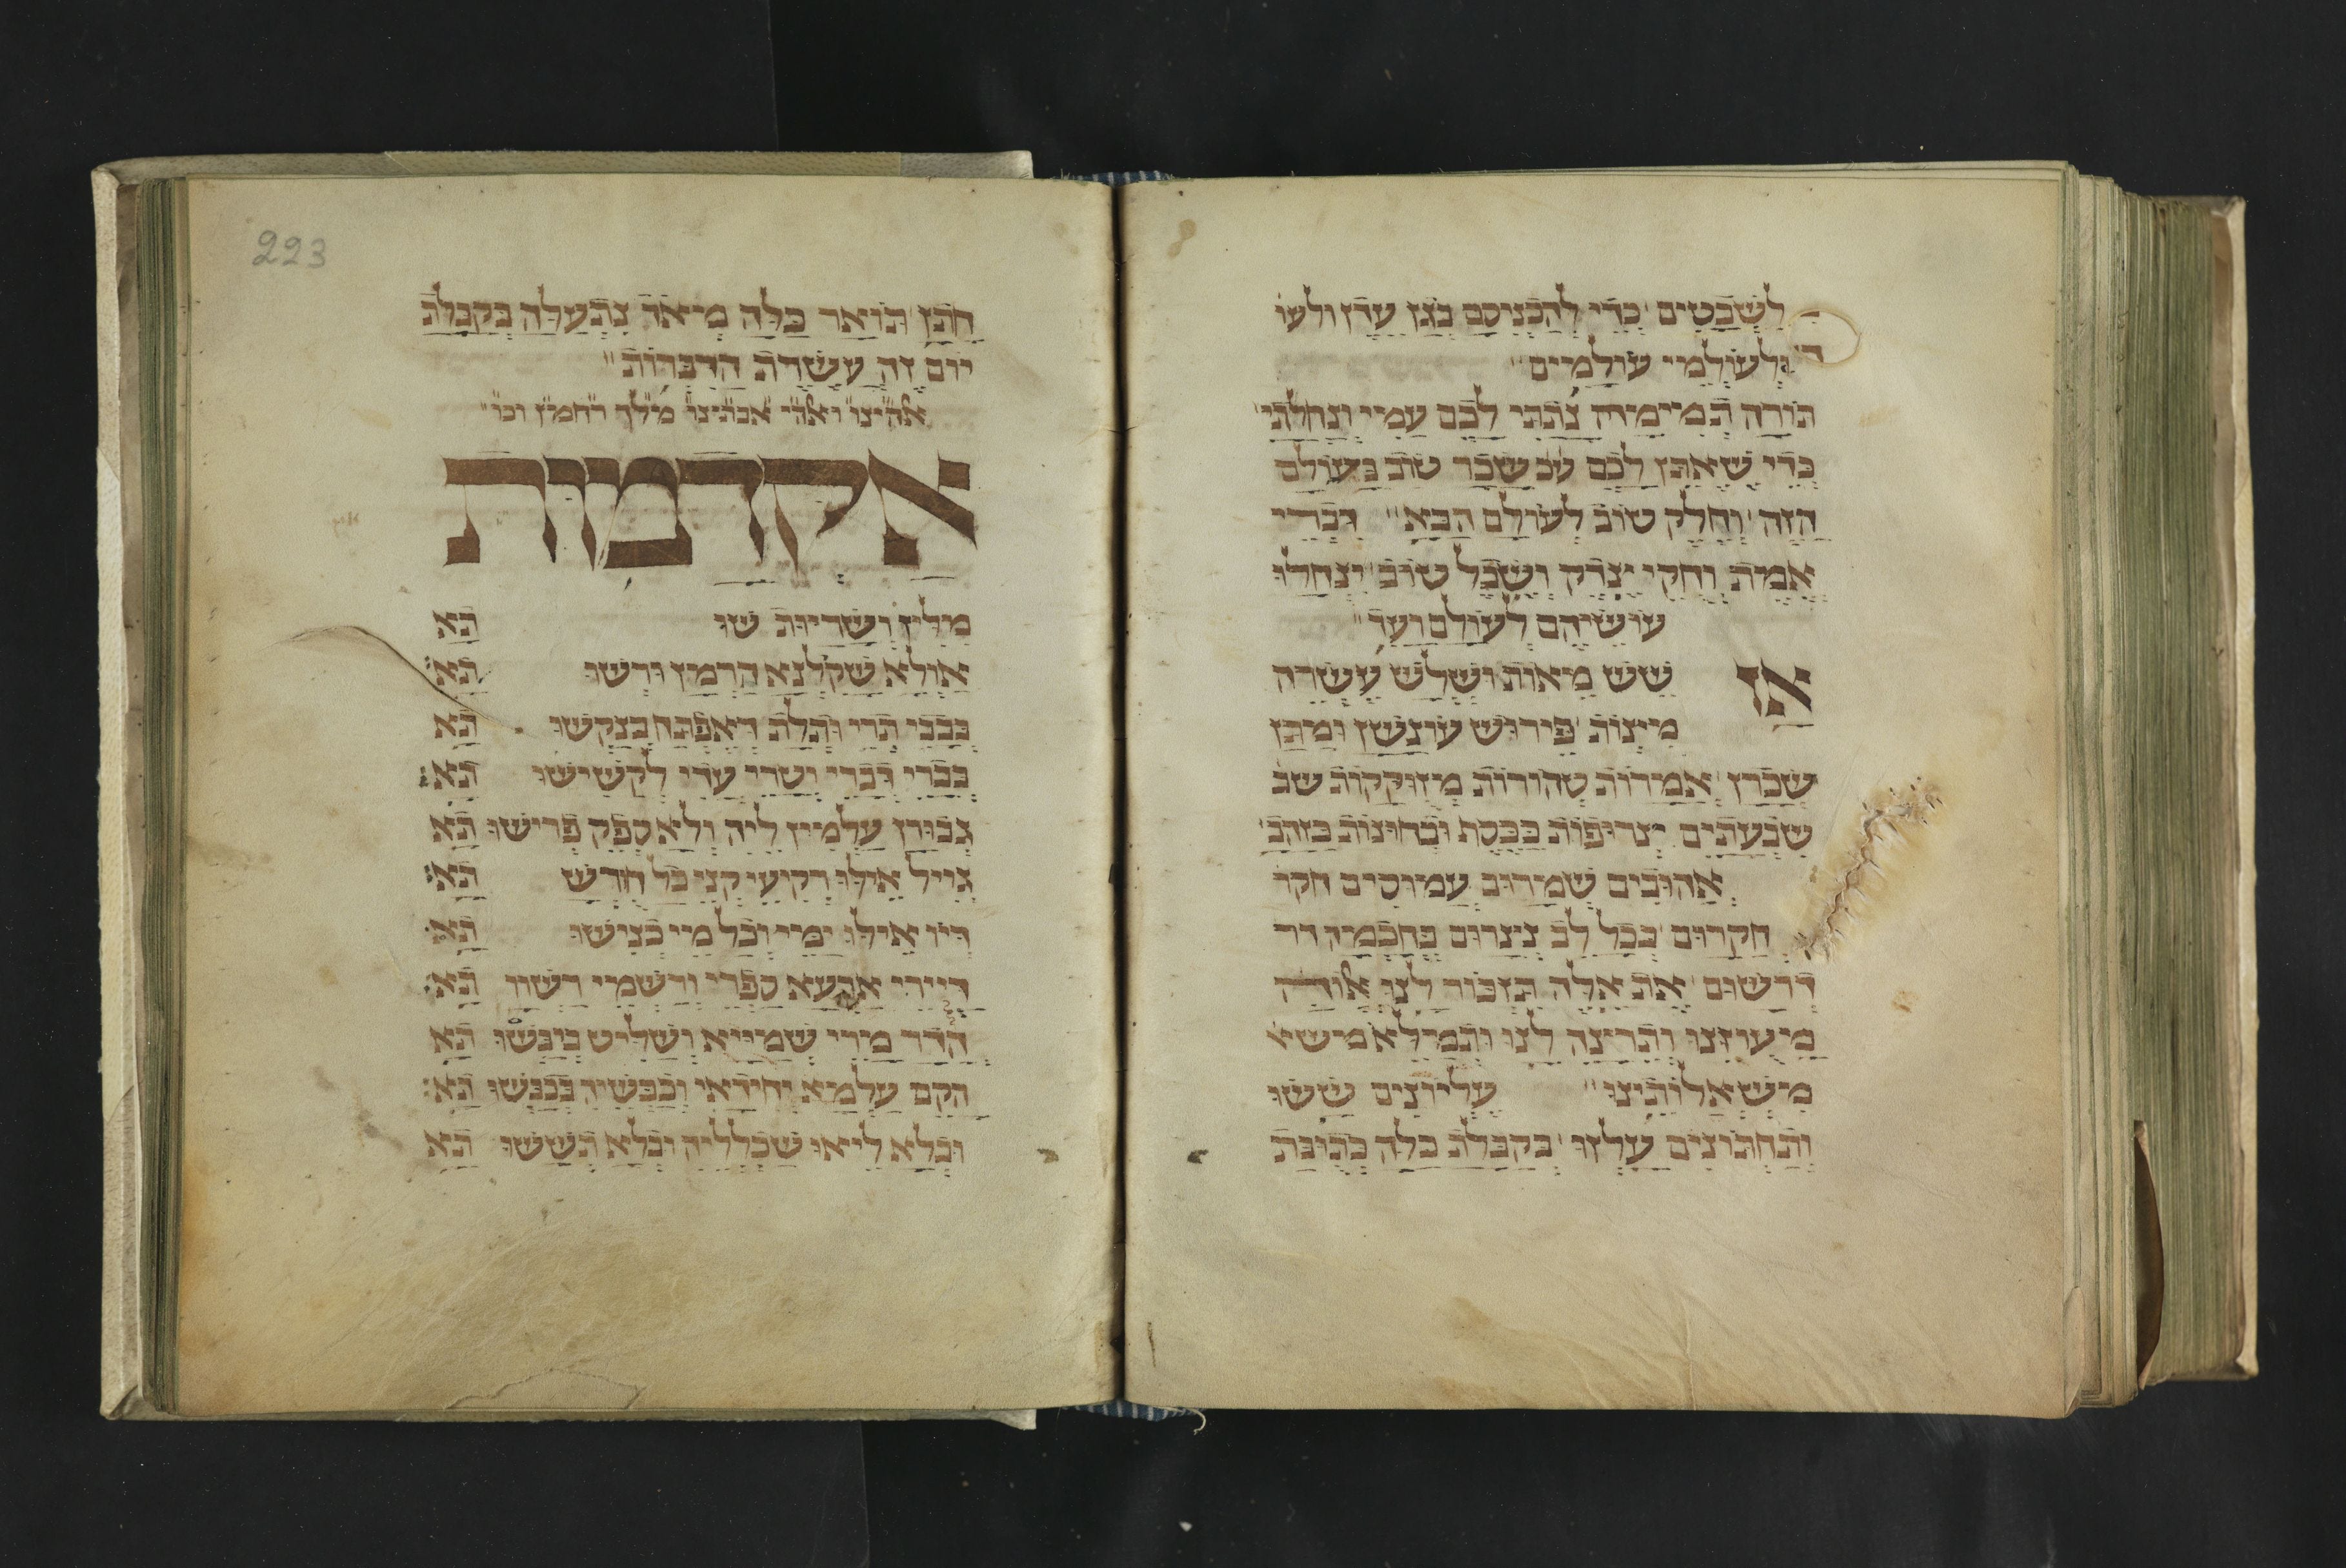 לשבטים כדי להכניסם בגן עדן ולעו
ולעולמי עולמים
תורה תמימה נתתי לכם עמי ונחלתי
כדי שאתן לכם עב שכר טוב בעולם
הזה וחלק טוב לעולם הבא דברי
אמת וחקי צדק ושכל טוב ינחלו
עושיהם לעולם ועד
אז שש מאות ושלש עשרה
מצות פירוש עונשן ומתן
שכרן אמרות טהורות מזוקקות שב
שבעתים צרופות ככסף ובחונות כזהב
אהובים שמרום עמוסים חקר
חקרום בכל לב נצרום בחכמה דר
דרשום את אלה תזכור לנו אודה
מעוזנו ותרצה לנו ותמלא משא
משאלותינו עליונים ששו
ותחתונים עלזו בקבלת כלה כתובת
223
חתן תואר כלה מאד נתעלה בקבלת
יום זה עשרת הדברות
אלהינו ואלהי אבתינו מלך רחמן וכו
אקדמות
מלין ושריות שו תא
אולא שקלנא הרמן ורשו תא
בבבי תרי ותלת דאפתח בנקשו תא
בברי דברי וטרי עדי לקשישו תא
גבורן עלמין ליה ולא ספק פרישו תא
גויל אילו רקיעי קני כל חרש תא
דיו אילו ימי וכל מי כנישו תא
דיירי ארעא ספרי ורשמי רשוו תא
הדר מרי שמייא ושליט ביבשו תא
הקם עלמא יחידאי וכבשיה בכבשו תא
ובלא ליאו שכלליה ובלא תששו תא